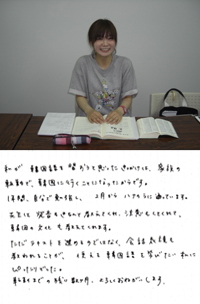 私が 韓国語を習おうと思ったきっかけは、家族の
転勤で、韓国に行くことになったからです。
年間、自分で勉強し、 2月から いけそらに通っています。
先生は 発音もきちんと教えてくれ、
韓国の文化も教えてくれます。
ただテキストを進めるだけではなく、会話表現も
教われることで、使える韓国語を学びたい私に
ぴったりでした。
転勤までの残り数か月、よろしくおねがいします。